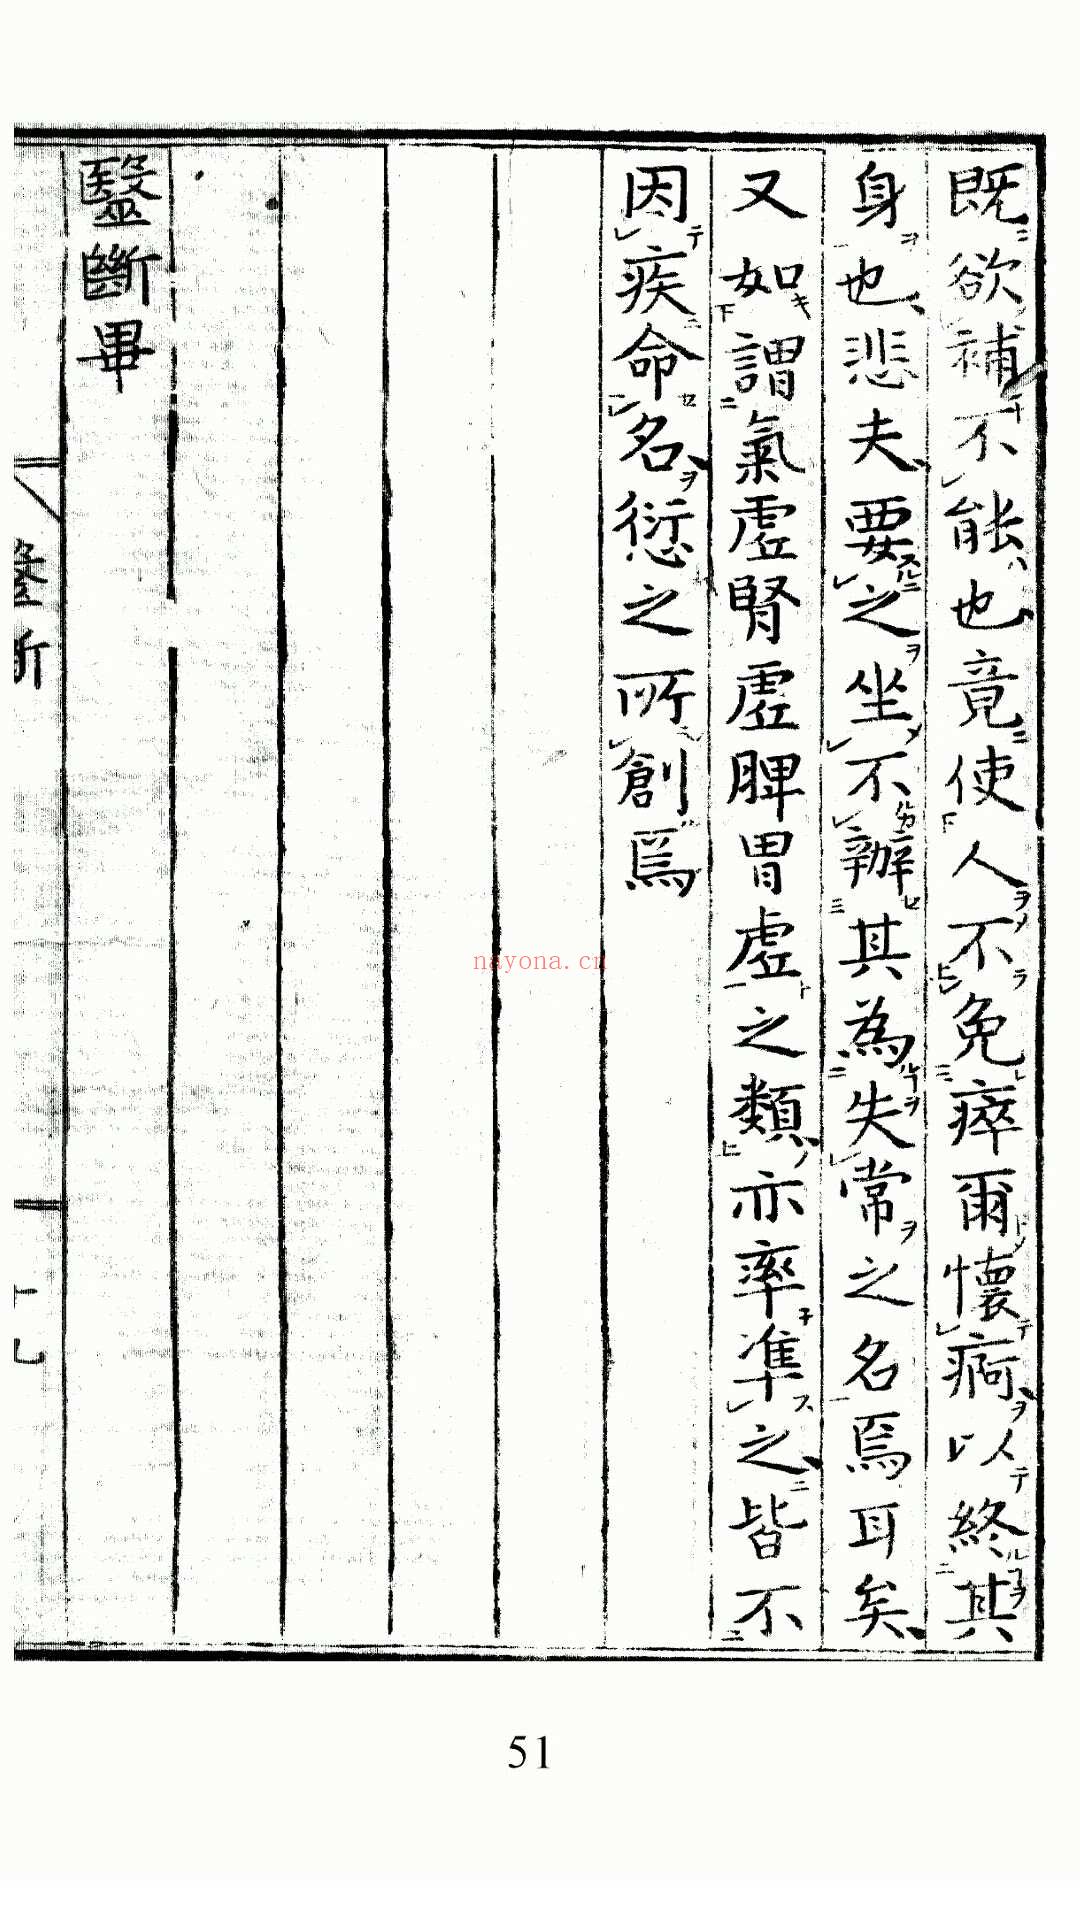 既欲補不能也竟使人不免瘁爾懷痾以終其
身也悲夫要之坐不辦其為失常之名焉耳矣
又如謂氣虛腎虛脾胃虛之類亦率準之皆不
因疾命名愆之所創焉
毉斷畢
毉斷
十九
nayona.cn
51